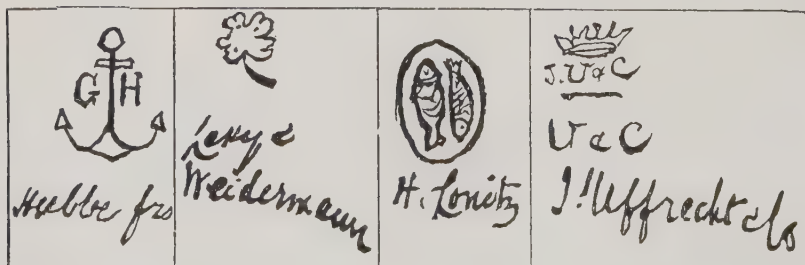 G H
Hubbe frs
Lony &
Weidermann
H. Lonitz
J. U & C
U & C
J! Uffrecht & Co